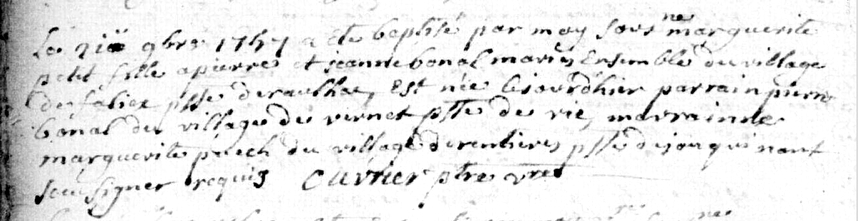 Le 21e 9bre 1757 a ete baptisé par moy sousné marguerite
petit fille a pierre et jeanne bonal mariés Ensemble du village
de falies psse de raulhac, est née le jourdhier parrain pierre
bonal du village du vernet psse de vic, marrainne
marguerite puech du village de rentieres psse de jou qui n'ont
sceu signer requis Cuvher ptre vre